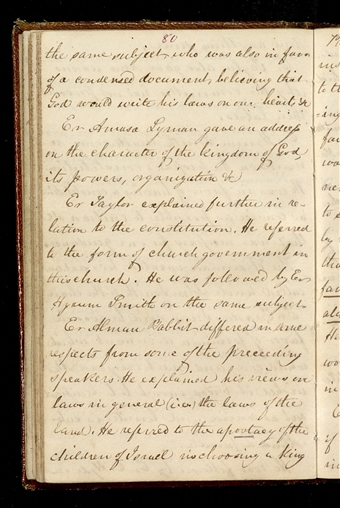 80
the same subject, who was also in favor
of a condensed document, believing that
God would write his laws on our heart &c
Er Amasa Lyman gave an address
on the character of the kingdom of God,
its powers, organization &c
Er Taylor explained further in re-
lation to the constitution. He referred
to the form of church government in
this church. He was followed by Er
Hyrum Smith on the same subject.
Er Almon Babbit differed in some
respects from some of the preceeding
speakers. He explained his views on
laws in general (i.e.) the laws of the
land. He referred to the apostacy of the
children of Israel in choosing a king